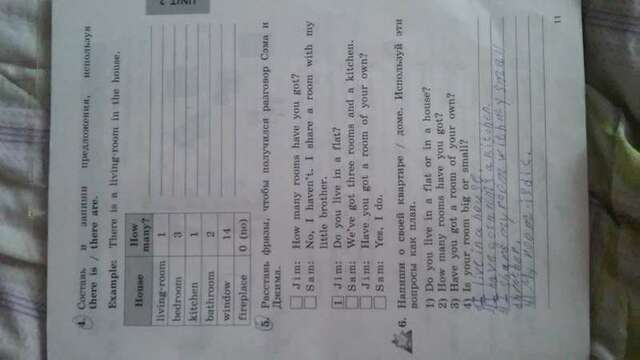 UNIT 2
4. Составь и запиши предложения, используя
there is / there are.
Example: There is a living-room in the house.
House How many?
living-room 1
bedroom 3
kitchen 1
bathroom 2
window 14
fireplace 0 (no)
5. Расставь фразы, чтобы получился разговор Сэма и
Джима.
Jim: How many rooms have you got?
Sam: No, I haven't. I share a room with my
little brother.
1 Jim: Do you live in a flat?
Sam: We've got three rooms and a kitchen.
Jim: Have you got a room of your own?
Sam: Yes, I do.
6. Напиши о своей квартире / доме. Используй эти
вопросы как план.
1) Do you live in a flat or in a house?
2) How many rooms have you got?
3) Have you got a room of your own?
4) Is your room big or small?
live in a house.
kitchen.
my room with my small
11